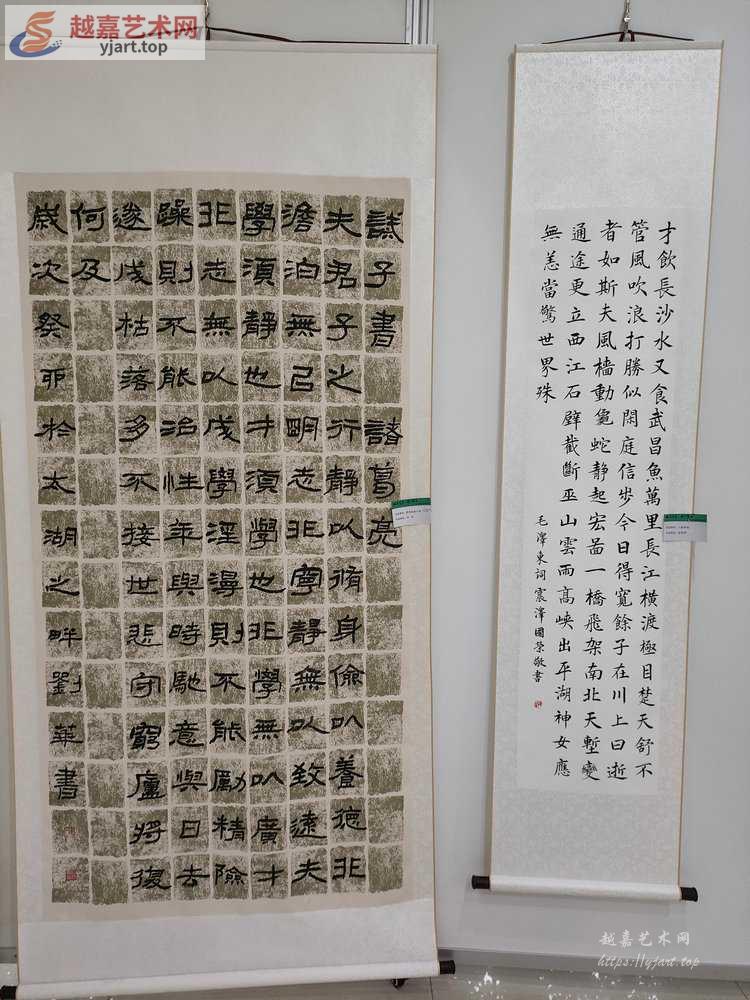 越嘉艺术网
yjart.top
誡子書 諸葛亮
夫君子之行靜以脩身儉以養德非
澹泊無已明志非寧靜無以致遠夫
學須靜也才須學也非學無以廣才
非志無以成學淫漫則不能勵精險
躁則不能治性年與時馳意與日去
遂成枯落多不接世悲守窮廬將復
何及
歲次癸卯於太湖之畔劉華書
才飲長沙水又食武昌魚萬里長江橫渡極目楚天舒不
管風吹浪打勝似閑庭信步今日得寬餘子在川上曰逝
者如斯夫風檣動龜蛇静起宏啚一橋飛架南北天塹變
通途更立西江石壁截斷巫山雲雨高峽出平湖神女應
無恙當驚世界殊
毛澤東詞震澤國榮敬書
越嘉艺术网
https://yjart.top